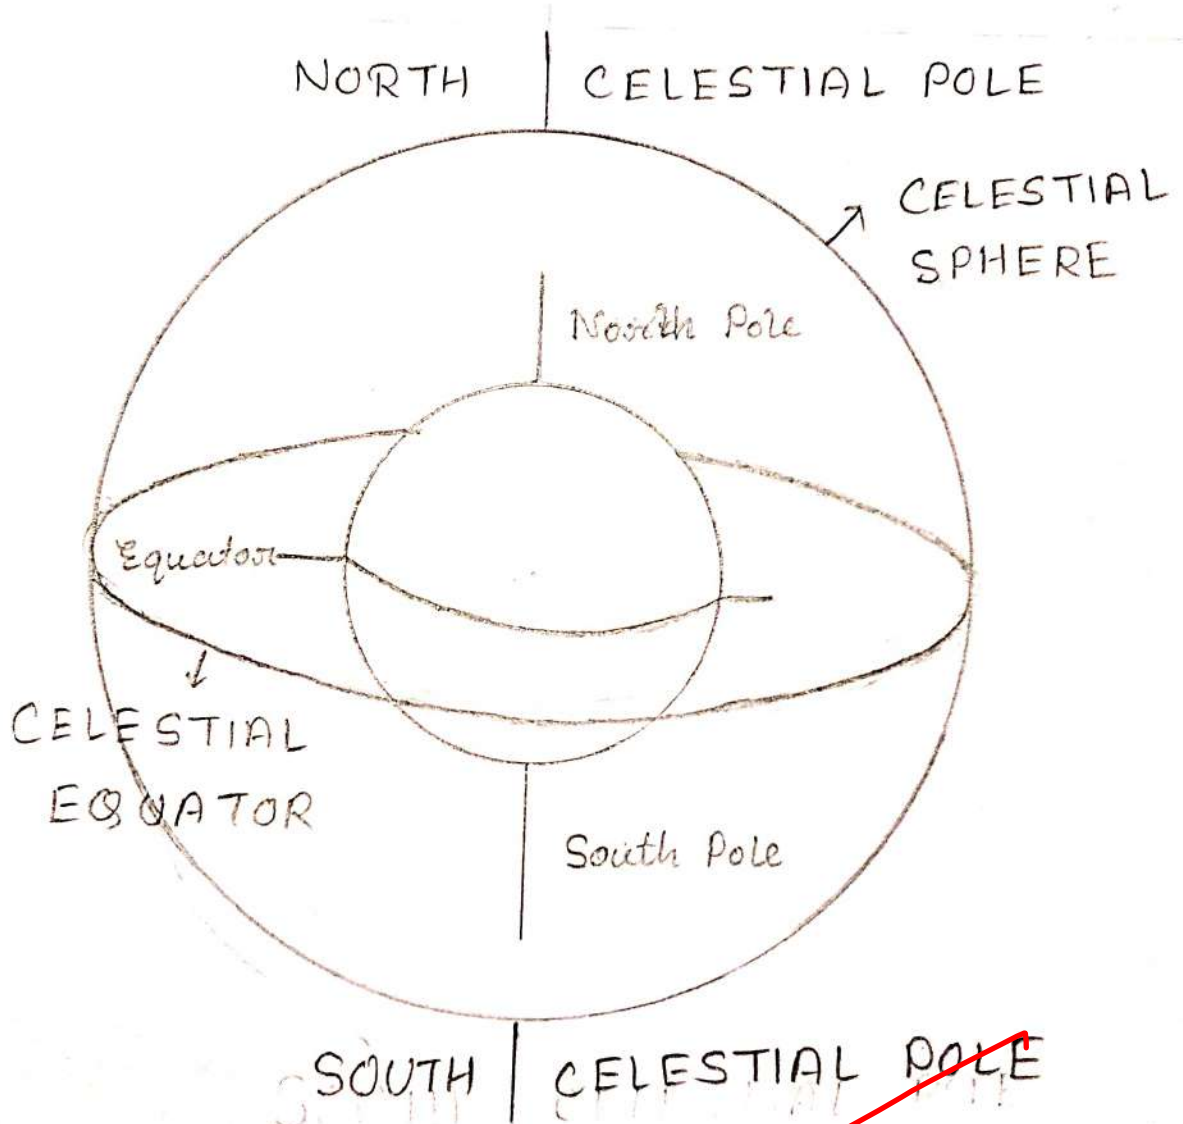 NORTH CELESTIAL POLE
CELESTIAL
SPHERE
North Pole
Equator
CELESTIAL
EQUATOR
South Pole
SOUTH CELESTIAL POLE